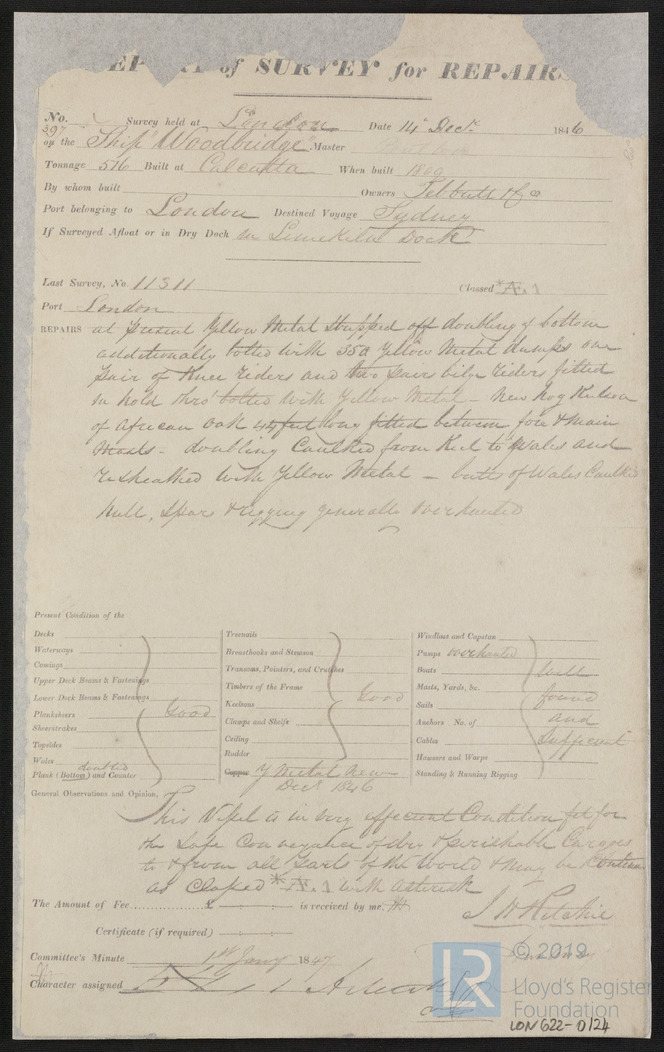 of SURVEY for REPAIRS
No. 397 Survey held at London Date 14 Decr. 1846
on the Ship Woodbridge Master
Tonnage 516 Built at Calcutta When built 1809
By whom built Owners Tebbutt & Co
Port belonging to London Destined Voyage Sydney
If Surveyed Afloat or in Dry Dock in Limekiln Dock
Last Survey, No 11311 Classed *Æ.1
Port London
REPAIRS at present Yellow Metal stripped off doubling of bottom
additionally bolted with 550 Yellow Metal dumps one
pair of Knee riders and two pairs bilge riders fitted
in hold thro' bolted with Yellow Metal - New hog Kelson
of African Oak 44 feet long fitted between fore & main
Masts - doubling Caulked from Keel to Wales and
resheathed with Yellow Metal - butts of Wales Caulked
hull, spars & rigging generally overhauled
Present Condition of the
Decks
Waterways
Comings
Upper Deck Beams & Fastenings
Lower Deck Beams & Fastenings
Planksheers Good
Sheerstrakes
Topsides
Wales
doubled
Plank (Bottom) and Counter
Treenails
Breasthooks and Stemson
Transoms, Pointers, and Crutches
Timbers of the Frame
Good
Keelsons
Clamps and Shelfs
Ceiling
Rudder
Copper Y Metal New
Decr 1846
Windlass and Capstan
Pumps overhauled
Boats well
Masts, Yards, &c.
found
Sails
and
Anchors No. of
Cables sufficient
Hawsers and Warps
Standing & Running Rigging
General Observations and Opinion,
This Vessel is in very efficient Condition fit for
the Safe Conveyance of dry & perishable Cargoes
to & from all parts of the World & may be Continued
as Classed *Æ.1 with asterisk
The Amount of Fee £ is received by me,
J H Ritchie
Certificate (if required)
Committee's Minute 1st Jany 1847
Character assigned
LR
© 2019
Lloyd's Register
Foundation
LON622-0124